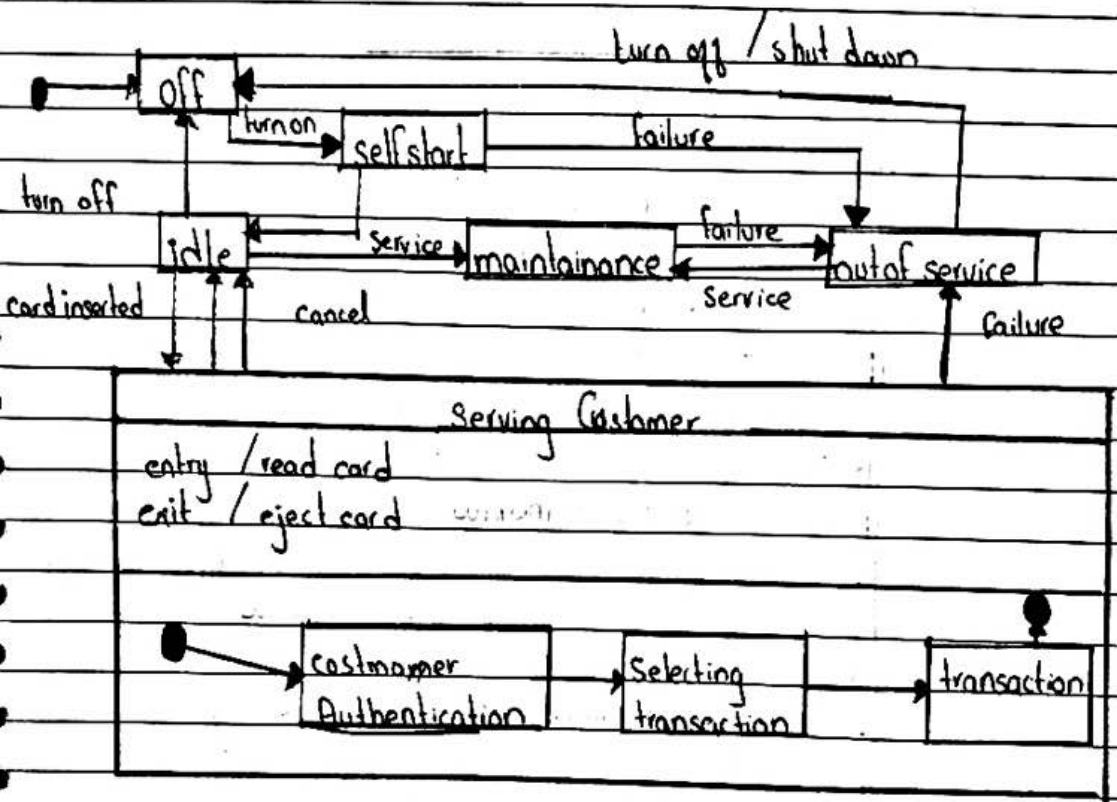 turn off / shut down
off
turn on
self start
failure
turn off
idle
service
maintainance
failure
out of service
service
card inserted
cancel
failure
Serving Costomer
entry / read card
exit / eject card
costmomer
Authentication
Selecting
transaction
transaction